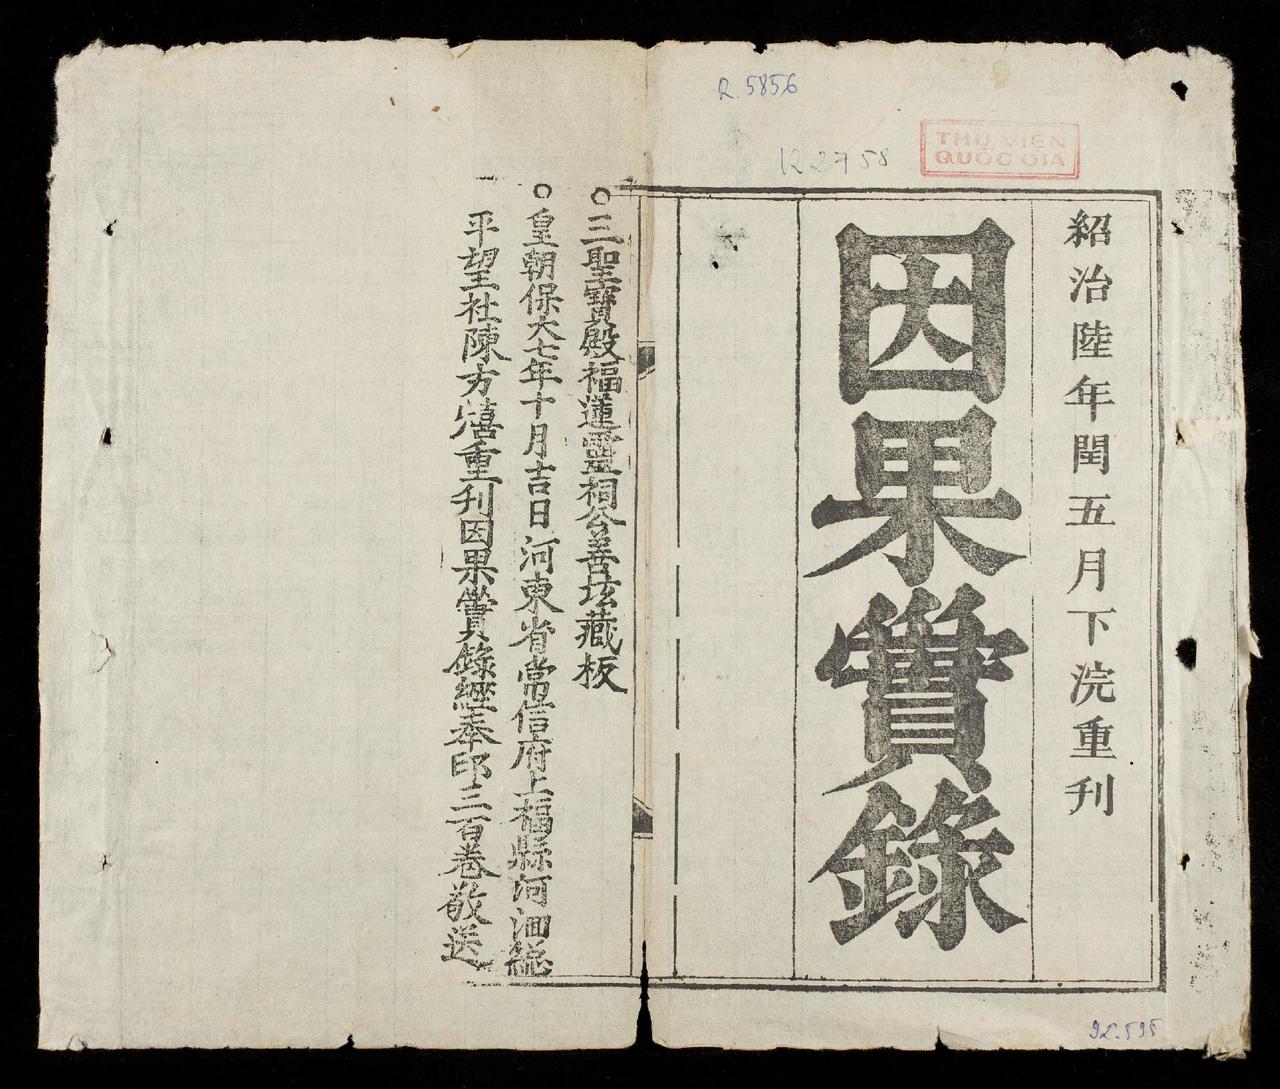 R.5856
R2758
THƯ VIỆN
QUỐC GIA
紹治陸年閏五月下浣重刊
因果實錄
三聖寶殿福蓮靈祠公善坛藏板
皇朝保大七年十月吉日河東省常信府上福縣河洄總
平望社陳方熺重刊因果實錄經奉印三百卷敬送
92.595